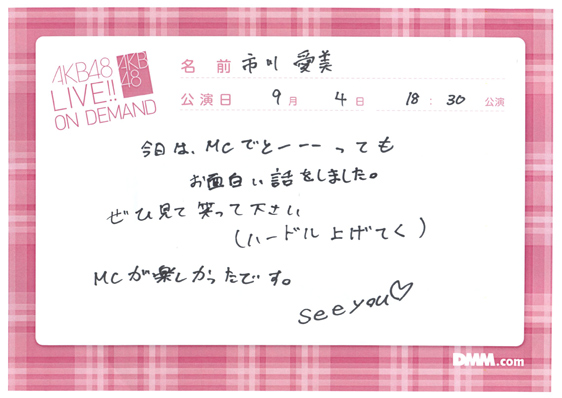 AKB48
LIVE!!
ON DEMAND
AKB
48
名 前 市川 愛美
公演日 9月 4日 18:30 公演
今日は、MCでとーーーっても
お面白い話をしました。
ぜひ見て笑って下さい
(ハードル上げてく)
MCが楽しかったです。
see you♡
DMM.com